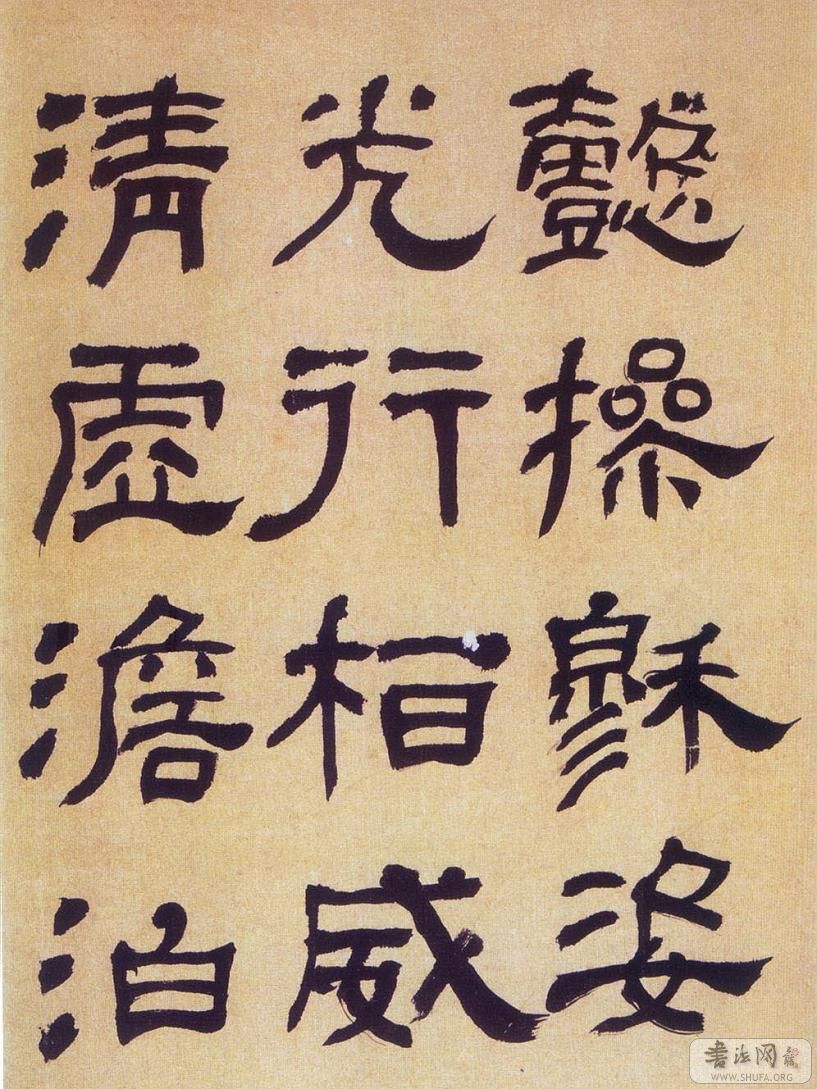 懿操䅮姿
光行相威
清虛澹泊
書法网
WWW.SHUFA.ORG